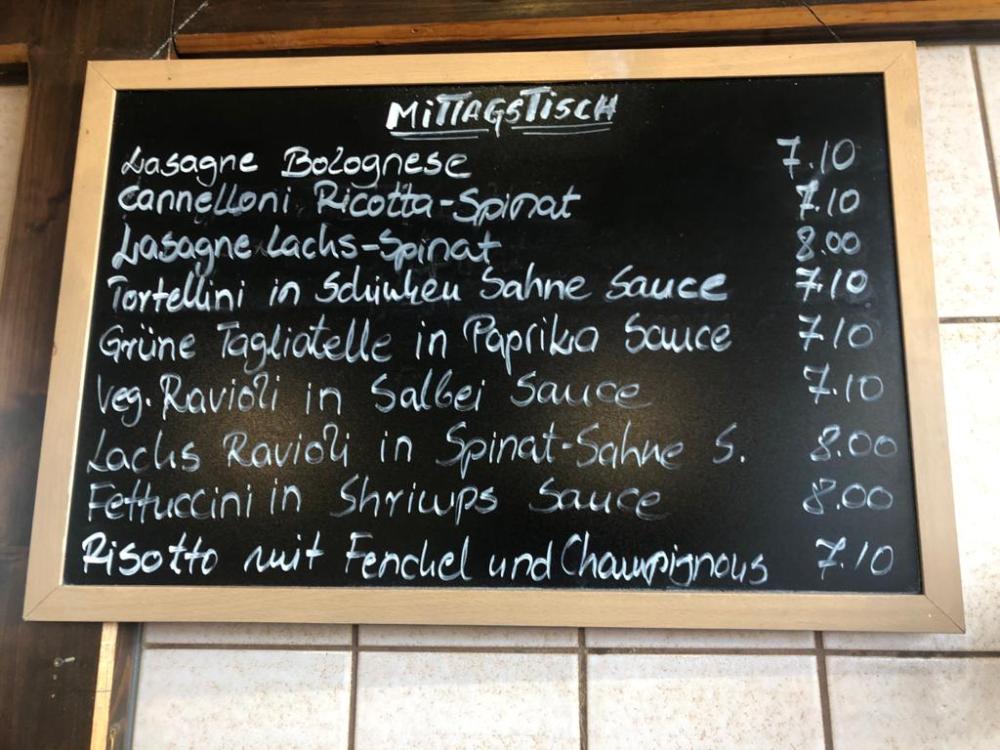 MiTTAGSTiSCH
Lasagne Bolognese 7.10
Cannelloni Ricotta-Spinat 7.10
Lasagne Lachs-Spinat 8.00
Tortellini in Schinken Sahne Sauce 7.10
Grüne Tagliatelle in Paprika Sauce 7.10
Veg. Ravioli in Salbei Sauce 7.10
Lachs Ravioli in Spinat-Sahne S. 8.00
Fettuccini in Shrimps Sauce 8.00
Risotto mit Fenchel und Champignons 7.10